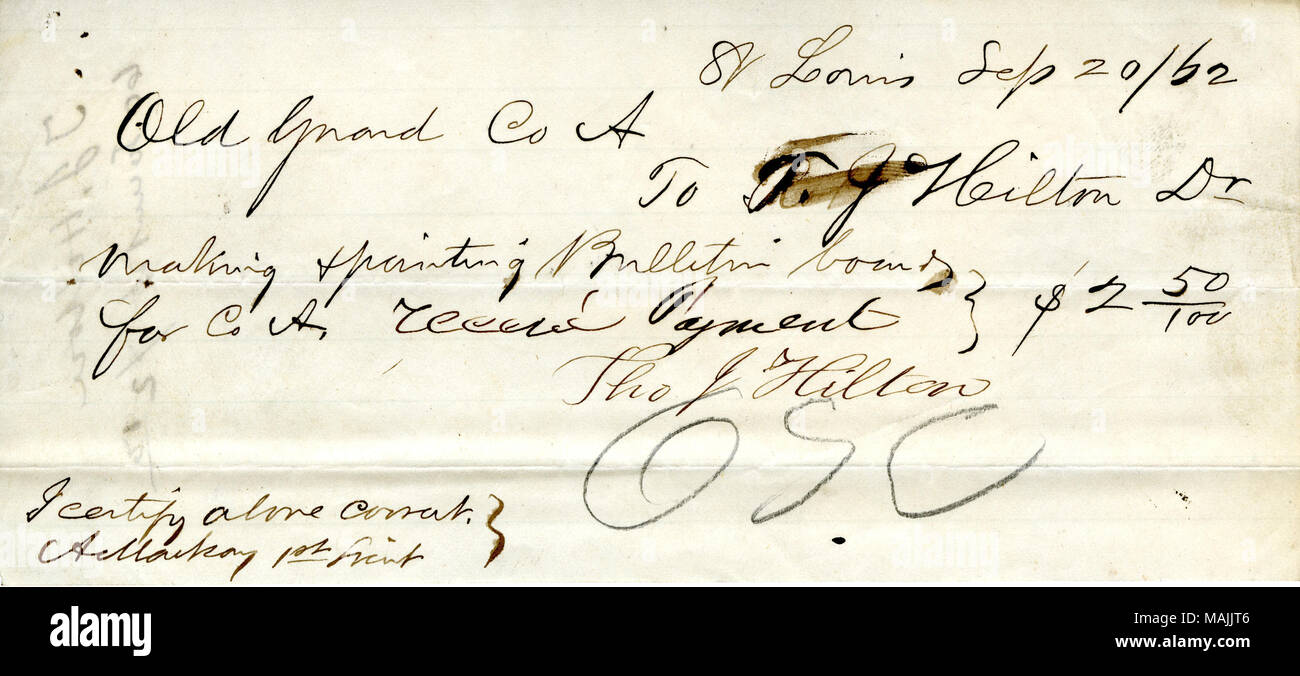 St Louis Sep 20/62
Old Guard Co A
To T. J Hilton Dr
making & painting Bulletin board
for Co A, $2 50/100
Recevd Payment
Tho J Hilton
O S C
I certify above correct.
A Mackay 1st Lieut
alamy
Image ID: MAJJT6
www.alamy.com